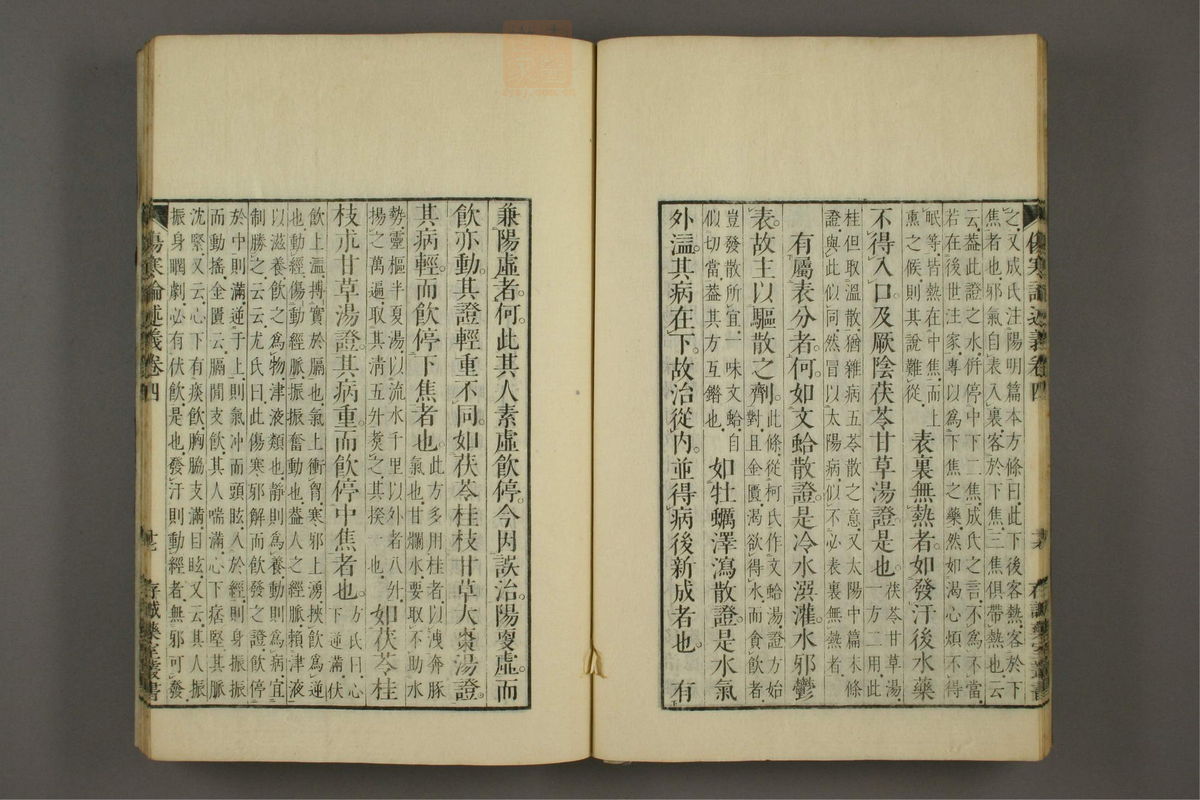 傷寒論述義卷四 十六 存誠藥室叢書
之又成氏注陽明篇本方條曰此下後客熱客於下
焦者也邪氣自表入裏客於下焦三焦俱帶熱也云
云葢此證之水併停中下二焦成氏之言不爲不當
若在後世注家專以爲下焦之藥然如渴心煩不得
眠等皆熱在中焦而上
熏之候則其說難從
表裏無熱者如發汗後水藥
不得入口及厥陰茯苓甘草湯證是也
茯苓甘草湯
一方二用此
桂但取溫散猶雜病五苓散之意又太陽中篇末條
證與此似同然冒以太陽病似不必表裏無熱者
有屬表分者何如文蛤散證是冷水潠灌水邪鬱
表故主以驅散之劑
此條從柯氏作文蛤湯證方始
對且金匱渴欲得水而貪飮者
豈發散所宜一味文蛤自
似切當葢其方互錯也
如牡蠣澤瀉散證是水氣
外溢其病在下故治從內並得病後新成者也 有
兼陽虛者何此其人素虛飮停今因誤治陽㪅虛而
飮亦動其證輕重不同如茯苓桂枝甘草大棗湯證
其病輕而飮停下焦者也
此方多用桂者以洩奔豚
氣也甘爛水要取不助水
勢靈樞半夏湯以流水千里以外者八升
揚之萬遍取其淸五升煑之其揆一也
如茯苓桂
枝朮甘草湯證其病重而飮停中焦者也
方氏曰心
下逆滿伏
飮上溢搏實於膈也氣上衝胷寒邪上湧挾飮爲逆
也動經傷動經脈振振奮動也葢人之經脈賴津液
以滋養飮之爲物津液類也靜則爲養動則爲病宜
制勝之云云尤氏曰此傷寒邪解而飮發之證飮停
於中則滿逆于上則氣冲而頭眩入於經則身振振
而動搖金匱云膈間支飮其人喘滿心下痞堅其脈
沈緊又云心下有痰飮胸脇支滿目眩又云其人振
振身瞤劇必有伏飮是也發汗則動經者無邪可發
傷寒論述義卷四 十七 存誠藥室叢書